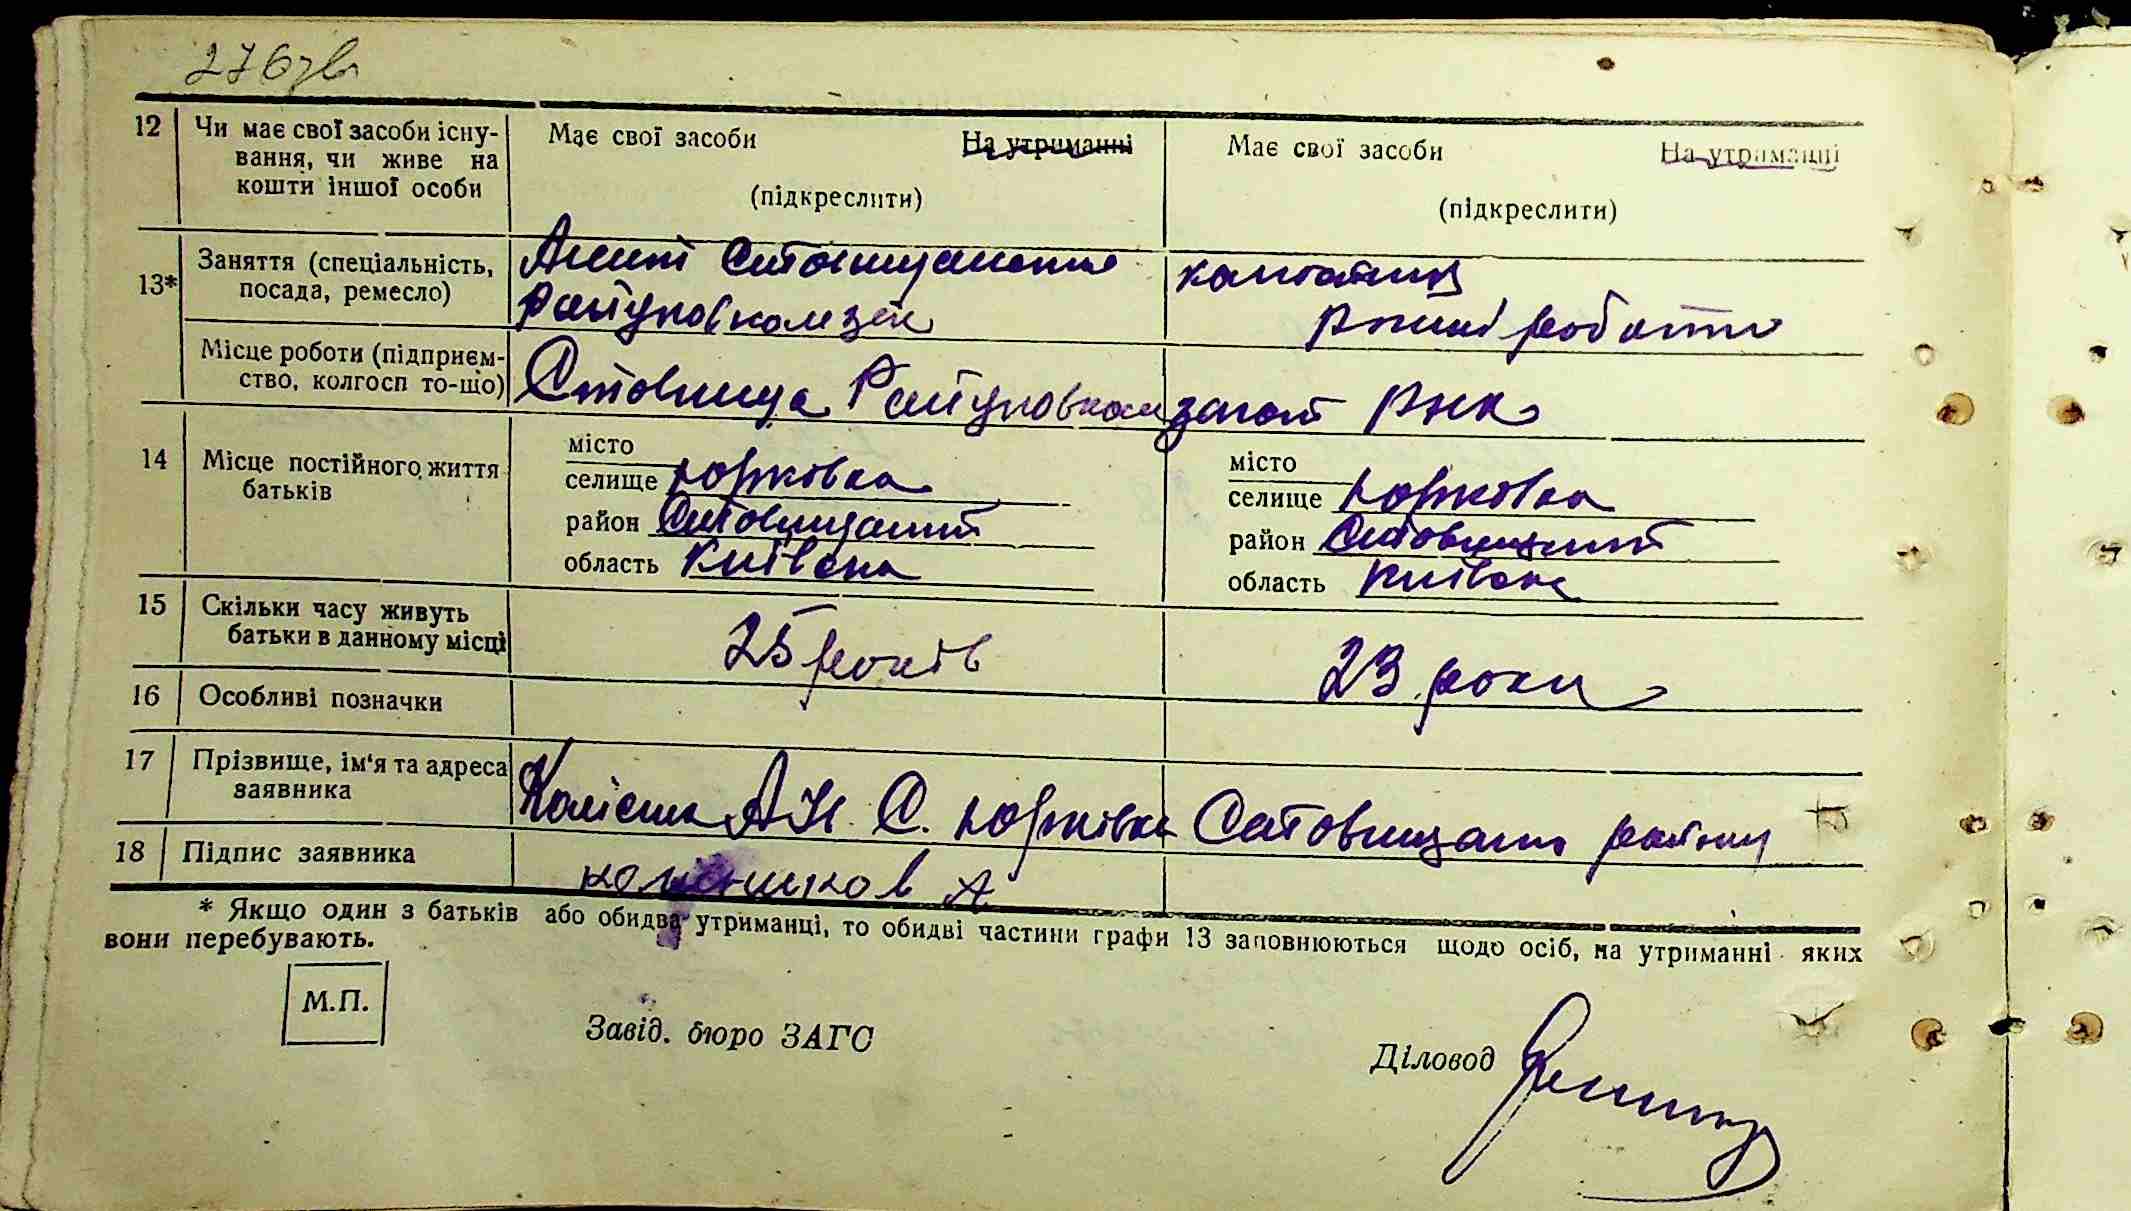 276зв
12 Чи має свої засоби існу-
вання, чи живе на
кошти іншої особи
Має свої засоби На утриманні
(підкреслити)
Має свої засоби На утриманні
(підкреслити)
13* Заняття (спеціальність,
посада, ремесло)
Агент
колгоспниця
різні роботи
Місце роботи (підприєм-
ство, колгосп то-що)
РНК
14 Місце постійного життя
батьків
місто
селище Юрківка
район
область Київська
місто
селище Юрківка
район
область Київська
15 Скільки часу живуть
батьки в данному місці
25 років
23 роки
16 Особливі позначки
17 Прізвище, ім'я та адреса
заявника
С. Юрківка району
18 Підпис заявника
А
* Якщо один з батьків або обидва утриманці, то обидві частини графи 13 заповнюються щодо осіб, на утриманні яких
вони перебувають.
М.П.
Завід. бюро ЗАГС
Діловод